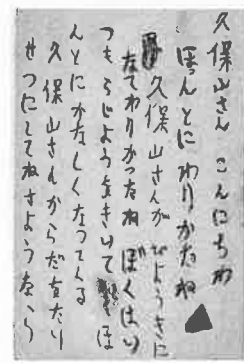 久保山さん こんにちわ
ほんとにわりかたね
久保山さんがびようきに
なてわりかつたね ぼくはい
つもらじようをきいてほ
んとにかなしくなつてくる
久保山さんからだをたり
せつにしてねさようなら